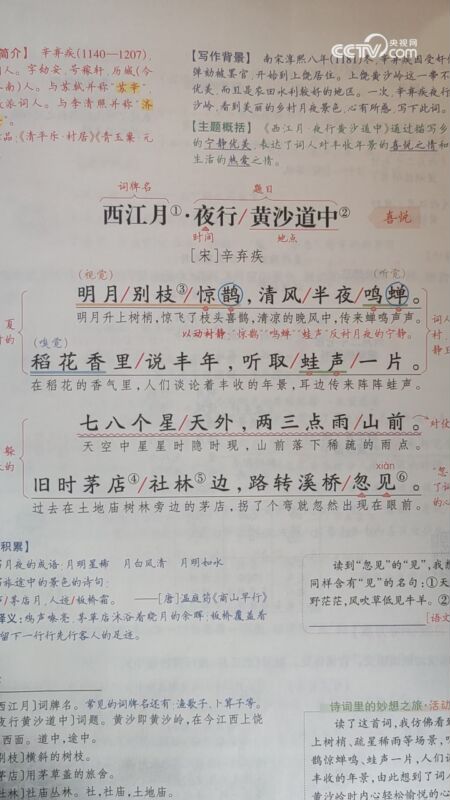 CCTV 央视网
com
简介】 辛弃疾(1140—1207),
词人。字幼安,号稼轩,历城(今
南)人。与苏轼并称“苏辛”,
派词人。与李清照并称“济
安”。
品:《清平乐·村居》《青玉案·元
【写作背景】 南宋淳熙八年(1181)冬,辛弃疾因受奸
弹劾被罢官,开始到上饶居住。上饶黄沙岭这一带不
优美,而且是农田水利较好的地区。一次,辛弃疾夜行
沙岭,看到美丽的乡村月夜景色,心有所感,写下此词。
【主题概括】 《西江月·夜行黄沙道中》通过描写乡
的宁静优美,表达了词人对丰收年景的喜悦之情和
生活的热爱之情。
词牌名 题目
西江月①·夜行/黄沙道中②
时间 地点
喜悦
[宋]辛弃疾
(视觉) (听觉)
明月/别枝③/惊鹊,清风/半夜/鸣蝉。
明月升上树梢,惊飞了枝头喜鹊,清凉的晚风中,传来蝉鸣声声。
以动衬静:“惊鹊”“鸣蝉”“蛙声”反衬月夜的宁静。
(嗅觉)
稻花香里/说丰年,听取/蛙声/一片。
在稻花的香气里,人们谈论着丰收的年景,耳边传来阵阵蛙声。
七八个星/天外,两三点雨/山前。
天空中星星时隐时现,山前落下稀疏的雨点。
xiàn
旧时茅店④/社林⑤边,路转溪桥/忽见⑥。
过去在土地庙树林旁边的茅店,拐了个弯就忽然出现在眼前。
夏
的
词人
静
对仗
积累】
月夜的成语:月明星稀 月白风清 月明如水
旅途中的景色的诗句:
声/茅店月,人迹/板桥霜。 ——[唐]温庭筠《商山早行》
译义:鸡声嘹亮,茅草店沐浴着晓月的余晖;板桥覆盖着
留下一行行先行客人的足迹。
读到“忽见”的“见”,我想
同样含有“见”的名句:①天
野茫茫,风吹草低见牛羊。②
[语文
西江月]词牌名。常见的词牌名还有:渔歌子、卜算子等。
夜行黄沙道中]词题。黄沙即黄沙岭,在今江西上饶
西面。道中,途中。
别枝]横斜的树枝。
茅店]用茅草盖的旅舍。
社林]社庙丛林。社,社庙,土地庙。
诗词里的妙想之旅·活动
读了这首词,我仿佛看到
上树梢、疏星稀雨等场景,听
鹊惊蝉鸣,人们在蛙声
丰收的年景,由此想到了词人
黄沙岭时内心轻松愉悦的心